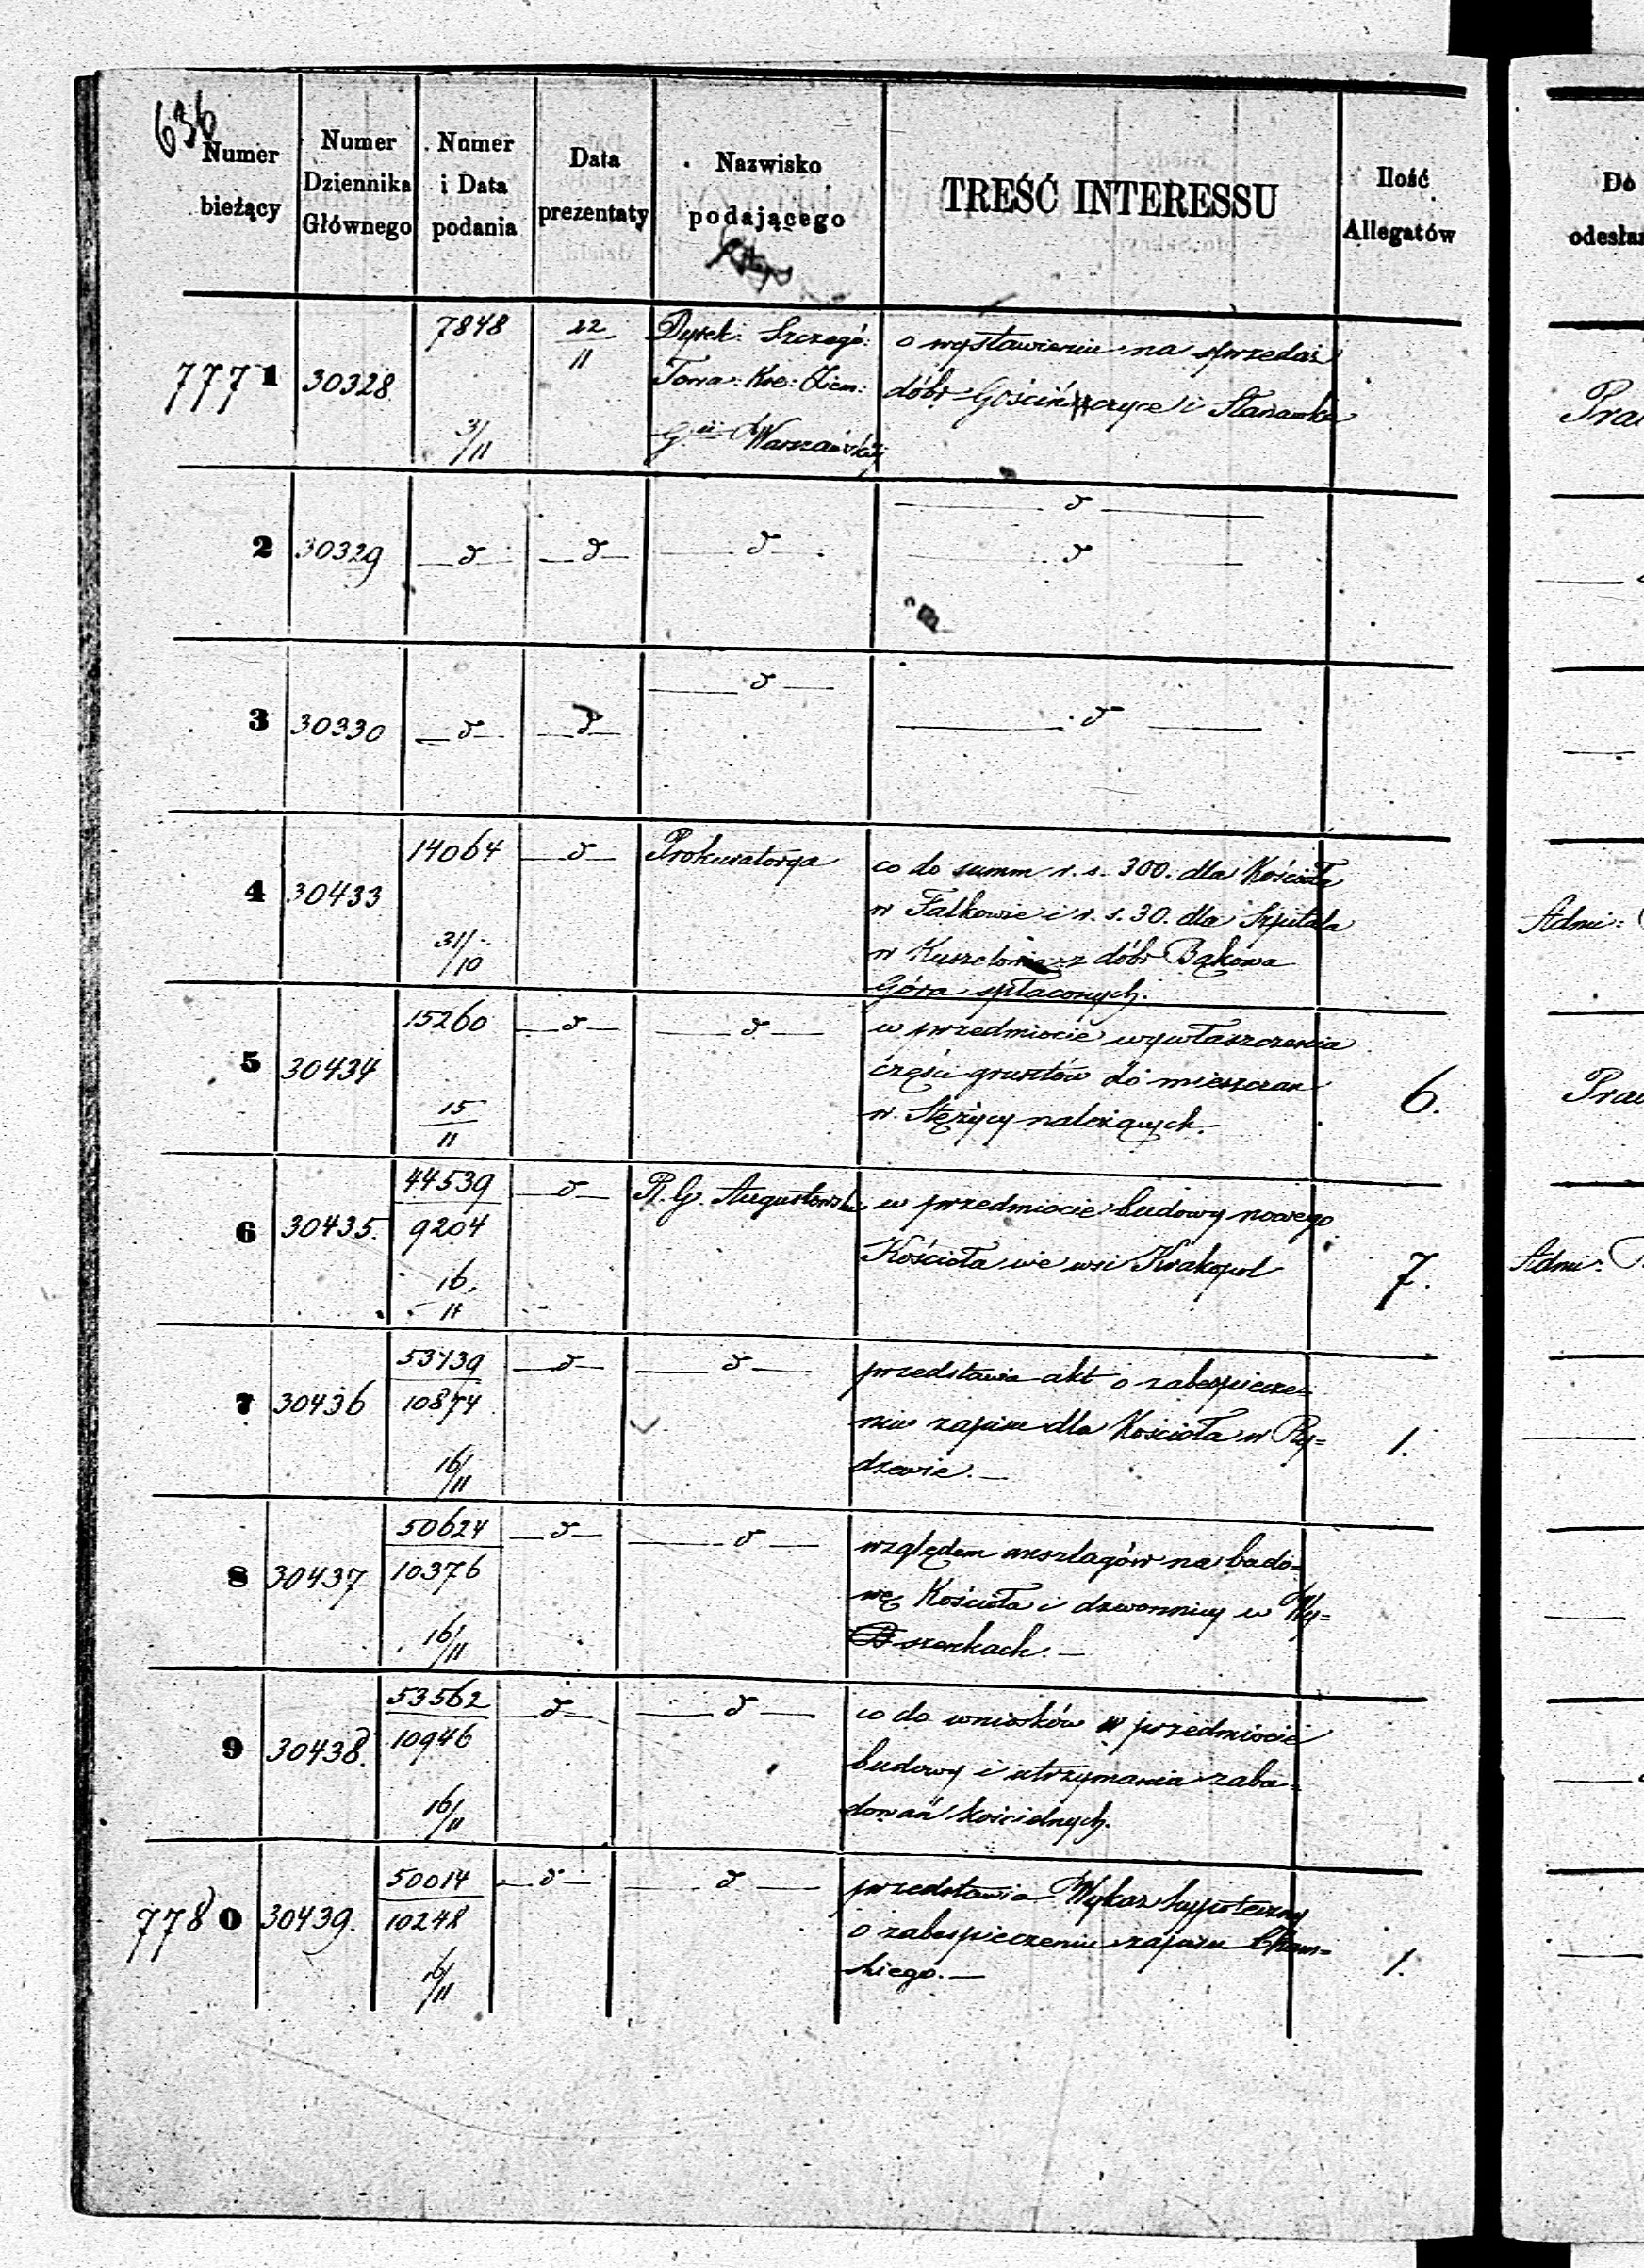 636
Numer bieżący
Numer Dziennika Głównego
Numer i Data podania
Data prezentaty
Nazwisko podającego
TREŚĆ INTERESSU
Ilość Allegatów
Do
odesła
7771 30328 7848 3/11 22/11
Dyrek: Szczegó:
Towa: Kre: Ziem:
Gii Warszawskiej
o wystawieniu na sprzedaż
dóbr Gościńczyce i
Pra
2 30329 d d d d
d
3 30330 d d d d
4 30433 14064 31/10 d Prokuratorya
co do summ r. s. 300. dla Kościoła
w Falkowie i r. s. 30. dla Szpitala
w z dóbr Bąkowa
Góra spłaconych.
Admi:
5 30434 15260 15/11 d d
w przedmiocie wywłaszczenia
części gruntów do mieszczan
w Stężycy należących.
6.
Pra
6 30435. 44539/9204 16/11 d R. G. Augustowski
w przedmiocie budowy nowego
Kościoła we wsi Krakopol
7.
Admi:
7 30436 53139/10874 16/11 d d
przedstawia akt o zabezpiecze=
niu zapisu dla Kościoła w Ry=
dzewie.—
1.
8 30437 50624/10376 16/11 d d
względem anszlagów na budo=
wę Kościoła i dzwonnicy w Wy=
szenkach.—
9 30438. 53562/10946 16/11 d d
co do wniosków w przedmiocie
budowy i utrzymania zabu=
dowań kościelnych.
7780 30439. 50014/10248 16/11 d d
przedstawia Wykaz hypoteczny
o zabezpieczeniu zapisu
skiego.—
1.